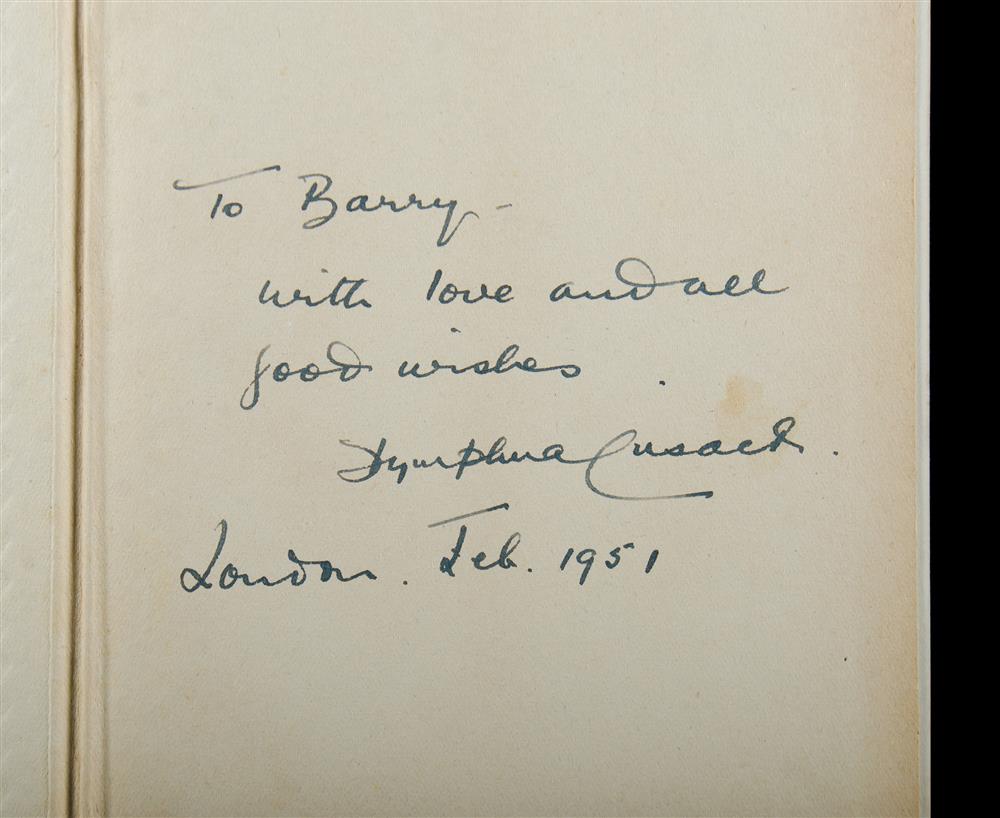 To Barry -
with love and all
good wishes
Dymphna Cusack.
London. Feb. 1951